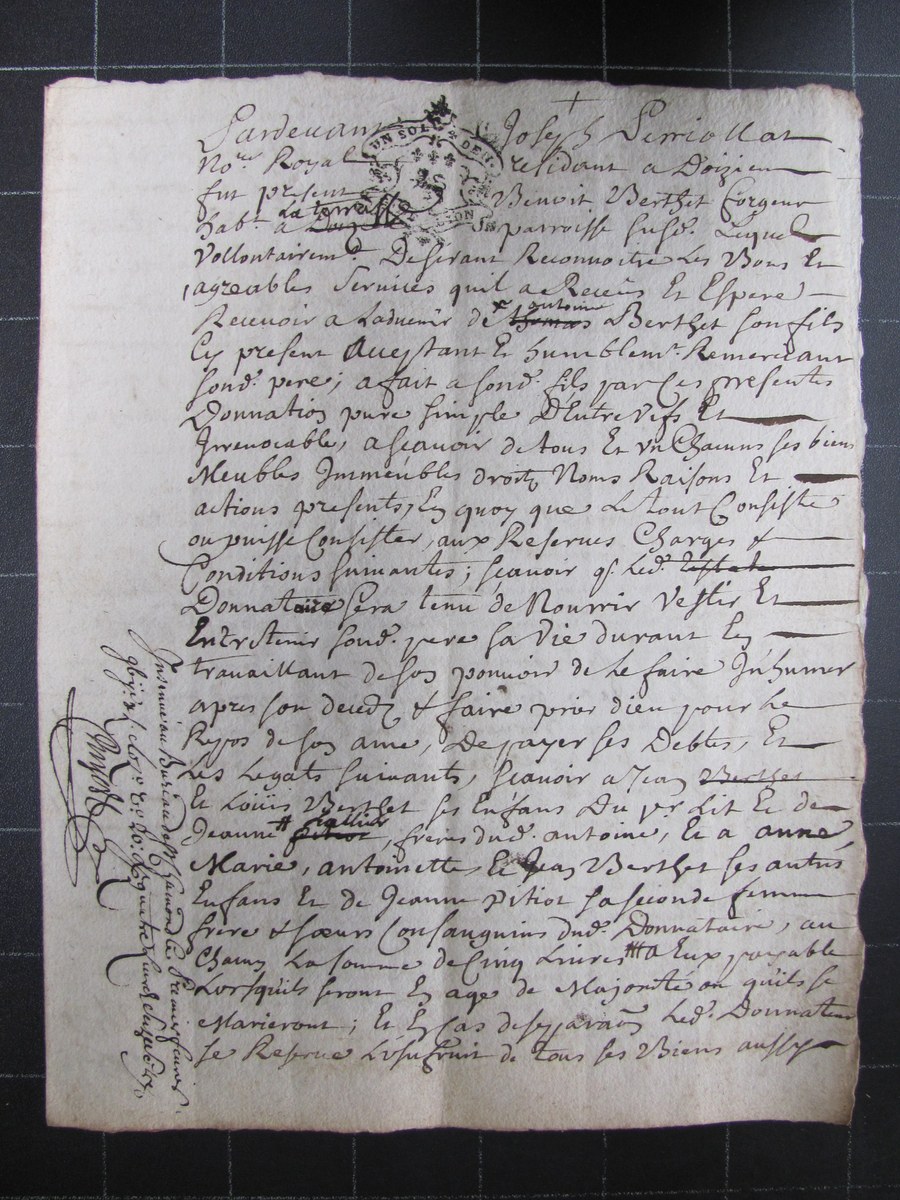 Pardevant Joseph Perriollat
UN SOL DE
LION
No.re Royal residant a Doizieu
fut present Benoit Berthet forgeur
hab.t a la terrasse parroisse susd. Lequel
Vollontairem.t Desirant Reconnoitre Les Bons Et
agreables Services quil a Receus Et Espere
Recevoir a Ladvenir de antoine Berthet son fils
Cy present Acceptant Et humblem.t Remerciant
sond. pere; a fait a sond. fils par Ces presentes
Donnation pure simple D'Entre Vifs Et
Irrevocable, a scavoir de tous Et Vn Chacuns ses biens
Meubles Immeubles droits Noms Raisons Et
actions presents, En quoy que Le tout Consiste
ou puisse Consister, aux Reserves Charges &
Conditions suivantes; scavoir q. Led.
Donnataire sera tenu de Nourrir Vestir Et
Entretenir sond. pere sa Vie durant En
travaillant de son pouvoir de Le faire Inhumer
apres son decedz & faire prier dieu pour Le
Repos de son ame, De payer ses Debtes, Et
Les Legats suivants, scavoir a Jean Berthet
Et Loüis Berthet ses Enfans Du p.r Lit Et de
Jeanne , freres dud. antoine, Et a anne
Marie, antoinette, Et Jean Berthet ses autres
Enfans Et de Jeanne pitiot sa seconde femme
frere & sœurs Consanguins dud. Donnataire, au
Chacun La somme de Cinq Livres a Eux payable
Lorsquils seront En age de Majorité ou quils se
Marieront; Et En Cas de separaon Led. Donnateur
se Reserve L'Usufruit de tous ses Biens aussy
Insinué au Bureau de St Chamond Le